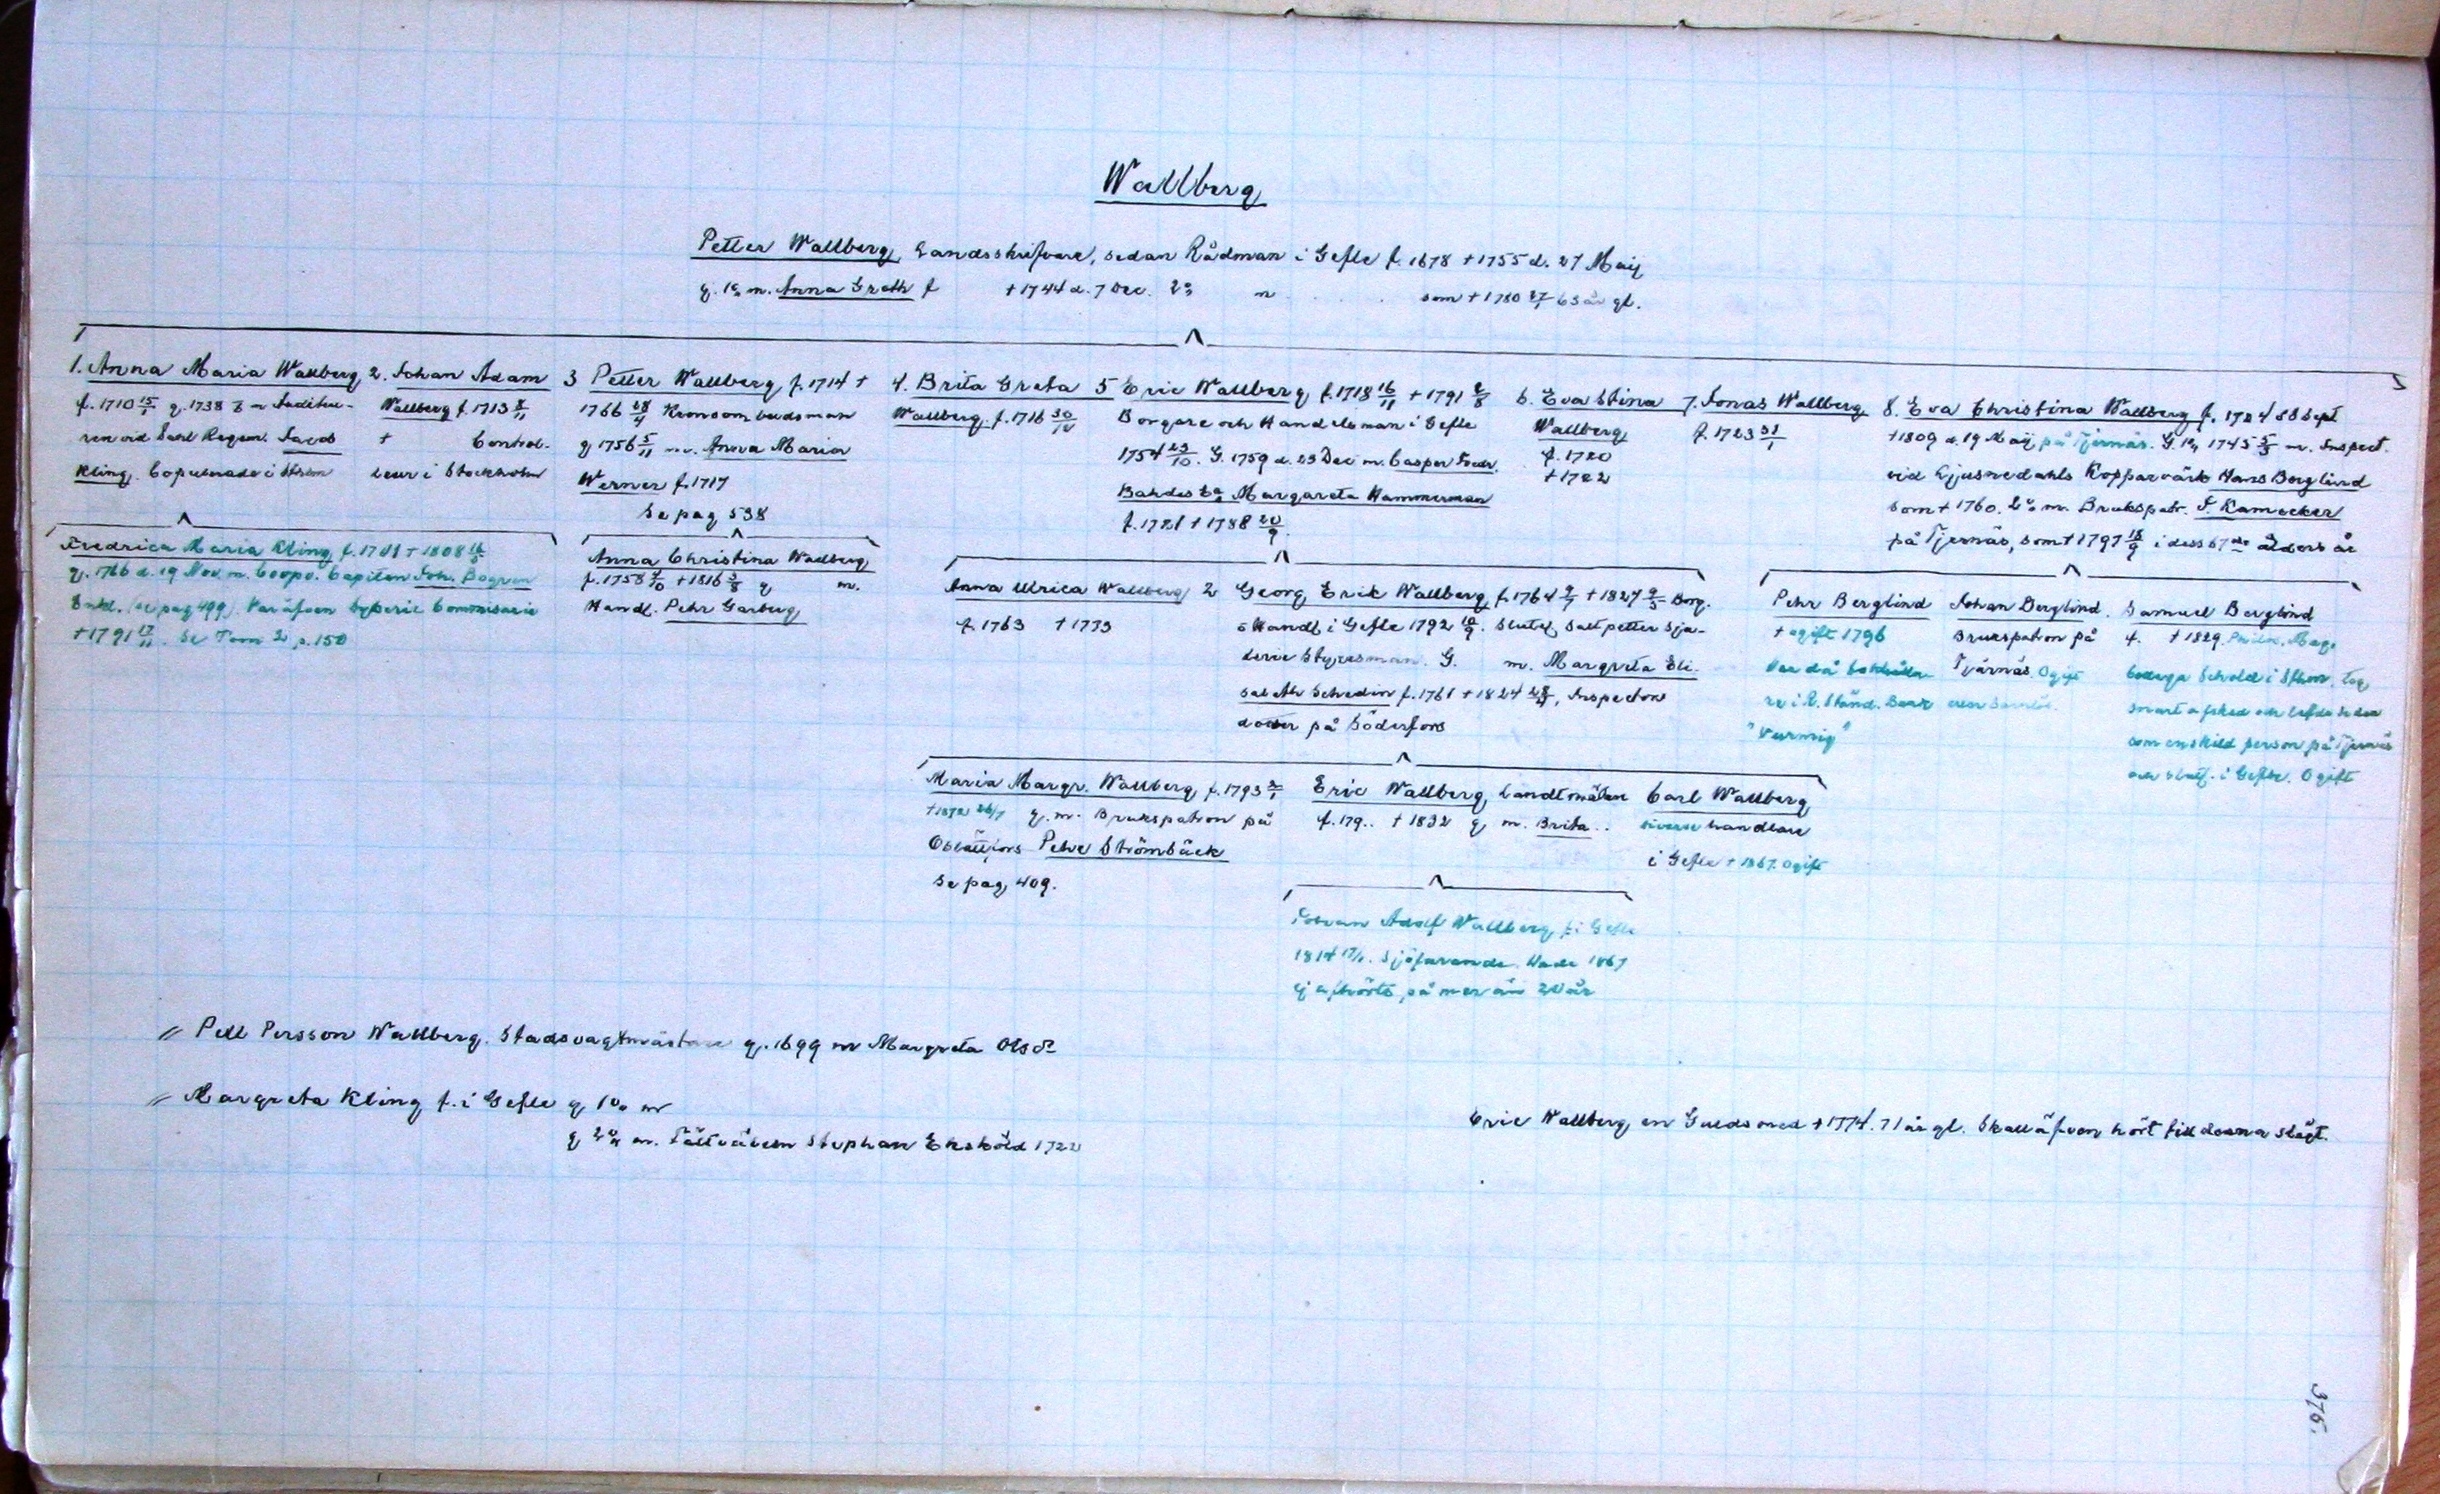 Wallberg
Petter Wallberg, Landsskrifvare, sedan Rådman i Gefle f. 1678 † 1755 d. 27 Maij
g. 1o m. Anna Greth f † 1744 d. 7 Dec. 2o m . . . . som † 1780 27/1 63 år gl.
1. Anna Maria Wallberg
f. 1710 15/1 g. 1738 m Auditeu-
ren vid Regem. Jacob
Kling. Copulerade i Sthlm
2. Johan Adam
Wallberg f. 1713 8/11
† Control-
leur i Stockholm
3 Petter Wallberg f. 1714 †
1766 28/4 Kronoombudsman
g 1756 5/11 m. Anna Maria
Werner f. 1717
Se pag 538
4. Brita Greta
Wallberg. f. 1716 30/12
5 Eric Wallberg f. 1718 16/11 † 1791 2/8
Borgare och Handelsman i Gefle
1754 23/10. G. 1759 d. 23 Dec m. Casper
Margareta Hammerman
f. 1721 † 1788 20/9.
6. Eva Stina
Wallberg
f. 1720
† 1722
7. Jonas Wallberg
f. 1723 31/1
8. Eva Christina Wallberg f. 1724 Sept
† 1809 d. 19 Maij på Tjernäs. G. 1o 1745 5/3 m. Inspect.
vid Ljusnedahls Kopparvärk Hans Berglind
som † 1760. 2o m. Brukspatr. J. Kamecker
på Tjernäs, som † 1797 18/9 i dess 67 ålders år
Fredrica Maria Kling f. 1741 † 1808
g. 1766 d. 19 Nov. m. Coopv. Capiten Joh. Bogren
(se pag 499). Var äfven Commissarie
† 1791 17/11. Se Tom 2 p. 150
Anna Christina Wallberg
f. 1758 † 1816 3/8 g m.
Handl. Pehr Garberg
Anna Ulrica Wallberg
f. 1763 † 1773
2 Georg Erik Wallberg f. 1764 9/7 † 1827 9/3 Borg.
o Handl. i Gefle 1792. Slutl. Saltpetter Sju-
derie Styresman. G. m. Margreta Eli-
sabeth Schedin f. 1761 † 1824, Inspectors
dotter på Söderfors
Pehr Berglind
† ogift 1796
Var då bokhålla-
re i R. Ständ. Bank
"Vurmig"
Johan Berglind.
Brukspatron på
Tjärnäs. Ogift
Samuel Berglind
f. † 1829. Philos. Mag.
Collega Schol i Sthm. Tog
snart afsked och lefde sedan
som enskild person på Tjernäs
och slutl. i Gefle. Ogift
Maria Margr. Wallberg f. 1793
† 1872 26/7 g. m. Brukspatron på
Oslättfors Pehr Strömbäck
Se pag 409.
Eric Wallberg, Landtmätare
f. 179.. † 1832 g m. Brita . .
Carl Wallberg
handlare
i Gefle † 1867. Ogift
Johan Adolf Wallberg f. i Gefle
1814 Sjöfarande. Hade 1867
ej afhörts på mer än 20 år
// Pell Persson Wallberg. Stadsvagtmästare g. 1699 m Margreta Olsdr
// Margreta Kling f. i Gefle g 1o m
g 2o m. Fältväbeln Stephan Eksköld 1722
Eric Wallberg en Guldsmed † 1774. 71 år gl. Skall äfven hört till denna slägt.
376.